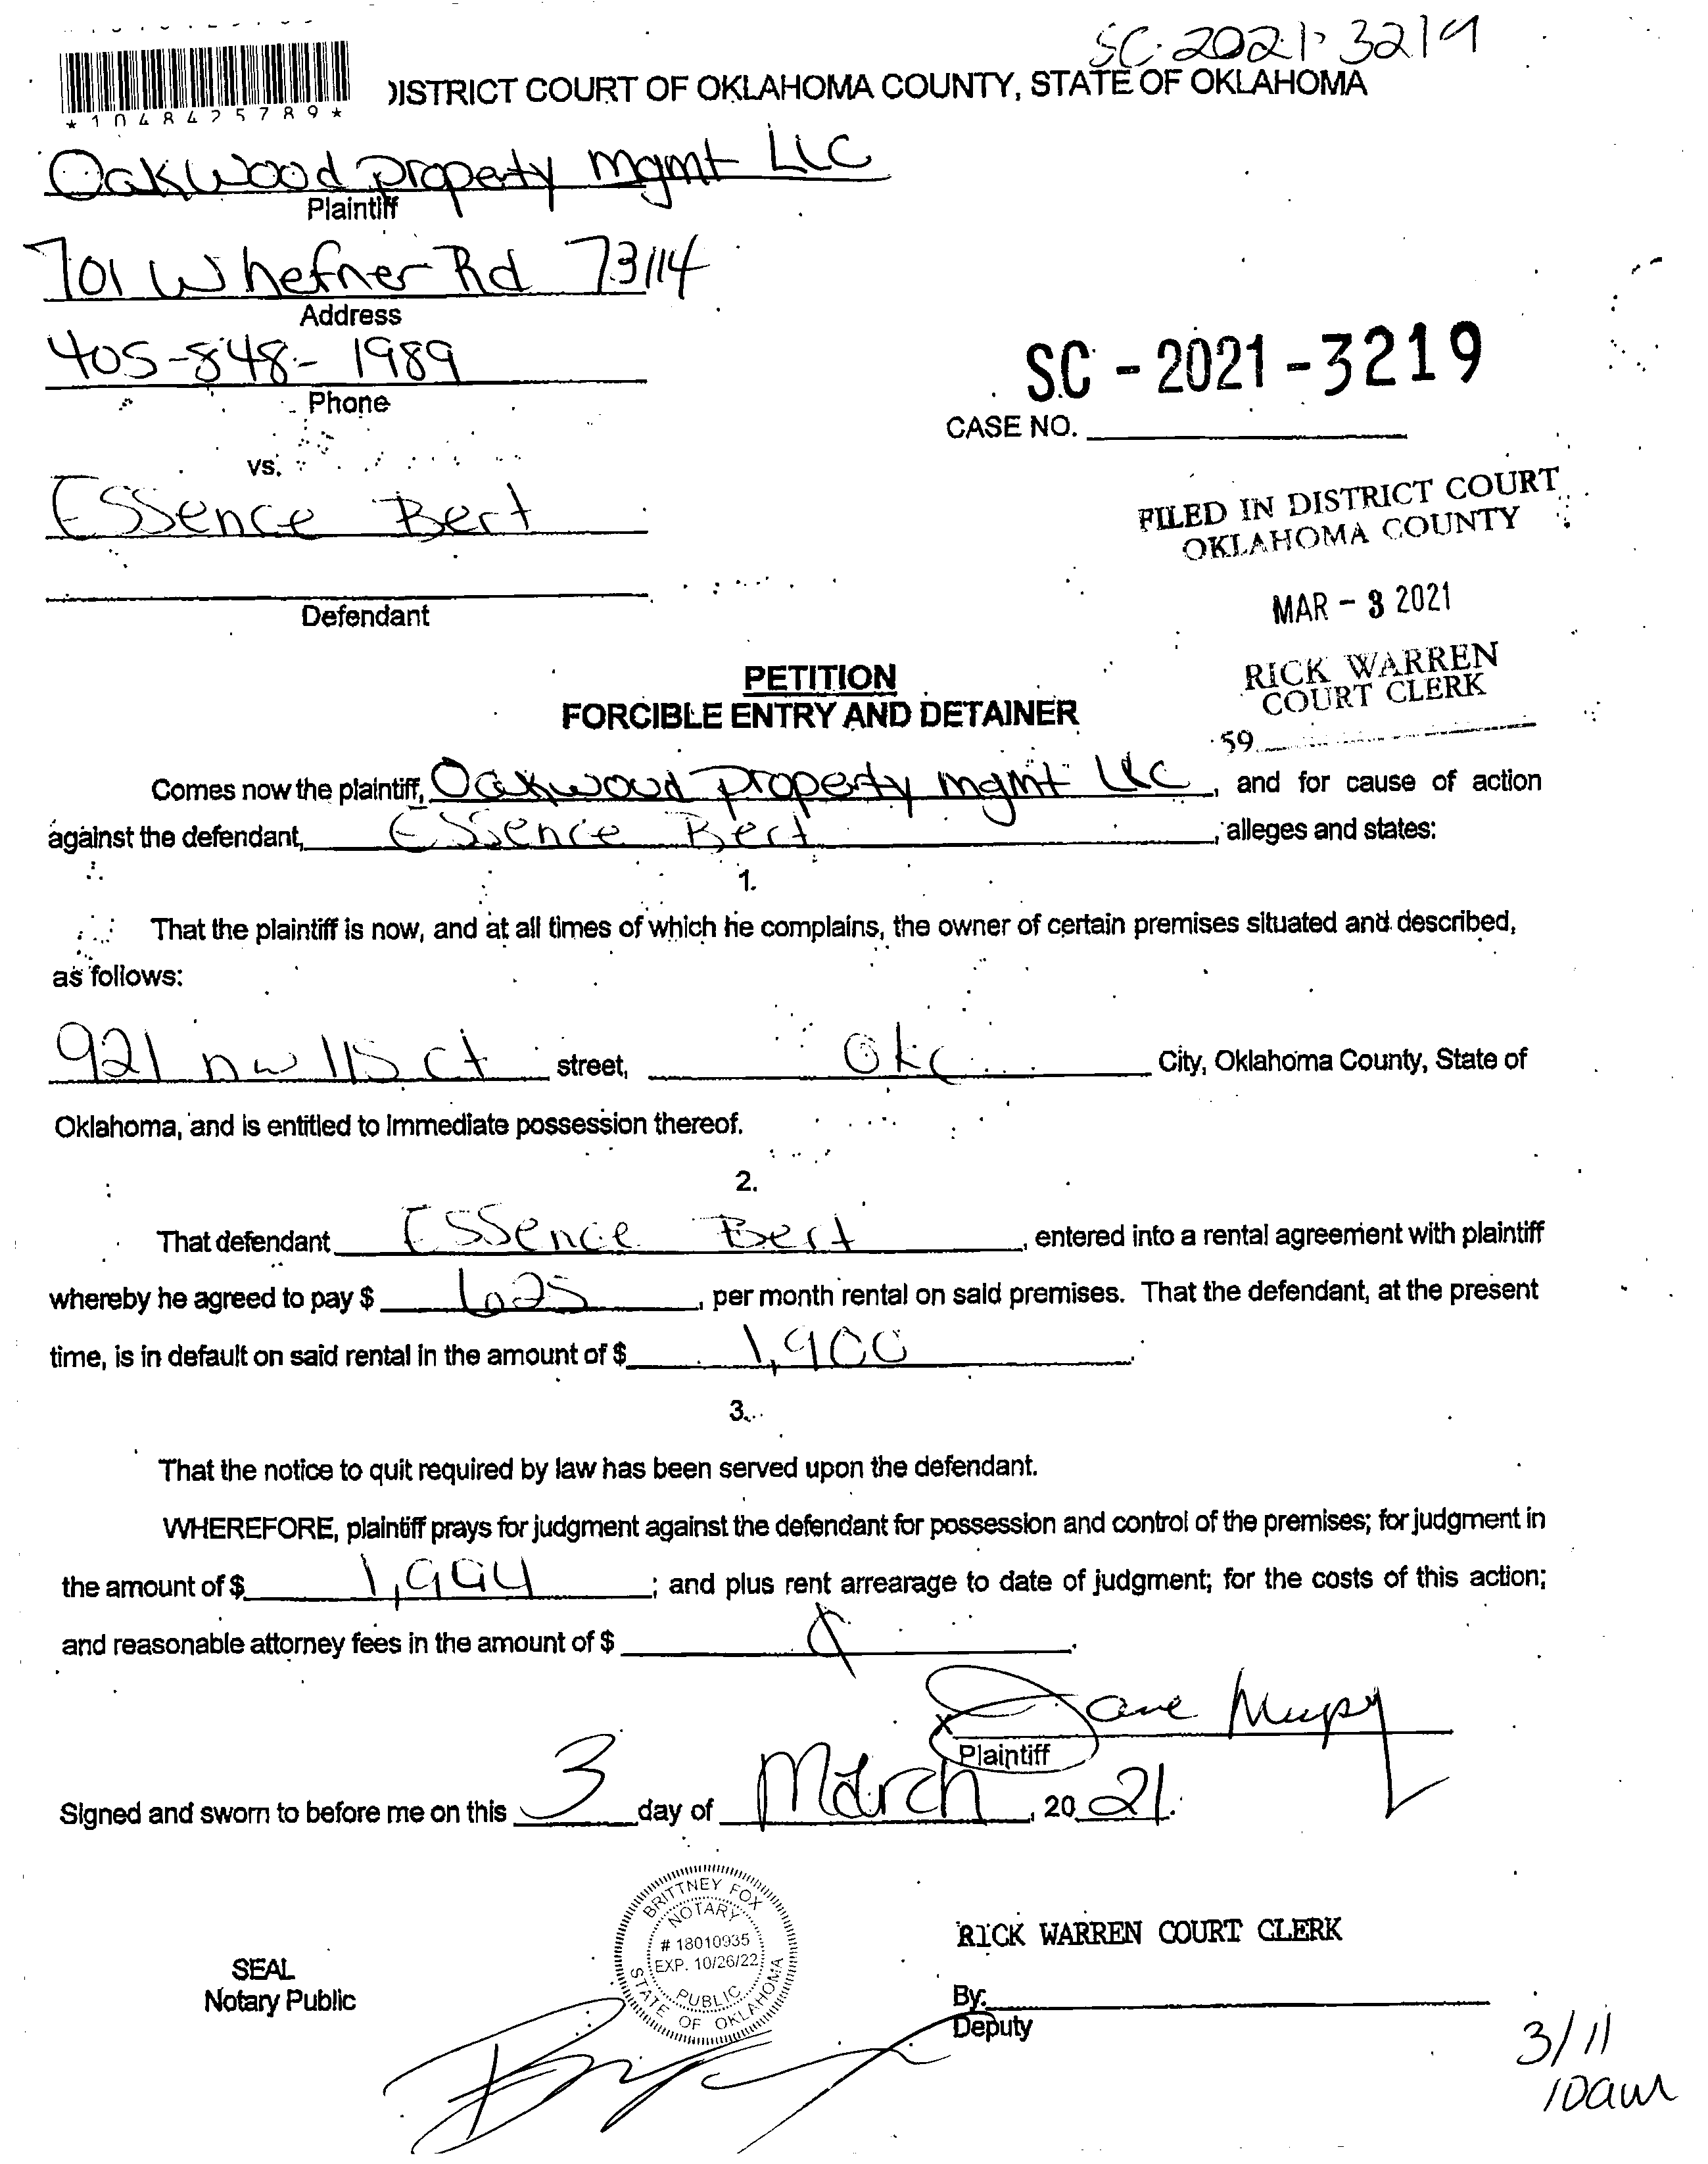 SC-2021-3219
DISTRICT COURT OF OKLAHOMA COUNTY, STATE OF OKLAHOMA
*1048425789*
Oakwood property mgmt LLC
Plaintiff
701 W hefner Rd 73114
Address
405-848-1989
Phone
SC - 2021 - 3219
CASE NO.
vs.
Essence Bert
Defendant
FILED IN DISTRICT COURT
OKLAHOMA COUNTY
MAR - 3 2021
RICK WARREN
COURT CLERK
59
PETITION
FORCIBLE ENTRY AND DETAINER
Comes now the plaintiff, Oakwood property mgmt LLC, and for cause of action
against the defendant, Essence Bert, alleges and states:
1.
That the plaintiff is now, and at all times of which he complains, the owner of certain premises situated and described,
as follows:
921 nw 115 ct street, OKC City, Oklahoma County, State of
Oklahoma, and is entitled to immediate possession thereof.
2.
That defendant Essence Bert, entered into a rental agreement with plaintiff
whereby he agreed to pay $ 625, per month rental on said premises. That the defendant, at the present
time, is in default on said rental in the amount of $ 1,900.
3.
That the notice to quit required by law has been served upon the defendant.
WHEREFORE, plaintiff prays for judgment against the defendant for possession and control of the premises; for judgment in
the amount of $ 1,994; and plus rent arrearage to date of judgment; for the costs of this action;
and reasonable attorney fees in the amount of $
X
Plaintiff
Signed and sworn to before me on this 3 day of March, 20 21.
BRITTNEY FOX
NOTARY
# 18010935
EXP. 10/26/22
PUBLIC
STATE OF OKLAHOMA
SEAL
Notary Public
RICK WARREN COURT CLERK
By:
Deputy
3/11
10am